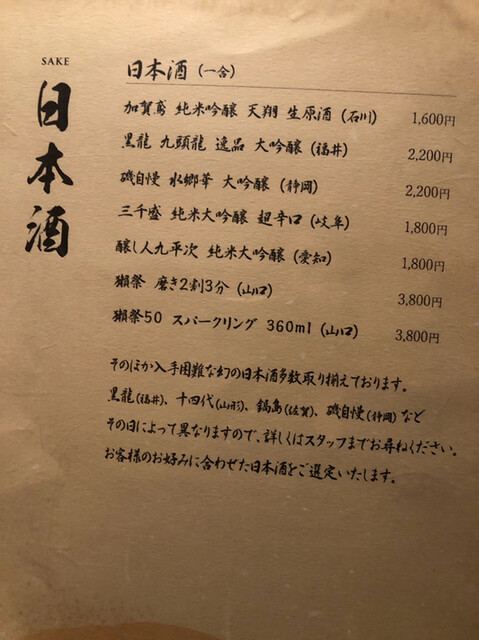 SAKE
日本酒
日本酒（一合）
加賀鳶 純米吟醸 天翔 生原酒（石川） 1,600円
黒龍 九頭龍 逸品 大吟醸（福井） 2,200円
磯自慢 水郷華 大吟醸（静岡） 2,200円
三千盛 純米大吟醸 超辛口（岐阜） 1,800円
醸し人九平次 純米大吟醸（愛知） 1,800円
獺祭 磨き2割3分（山口） 3,800円
獺祭50 スパークリング 360ml（山口） 3,800円
そのほか入手困難な幻の日本酒多数取り揃えております。
黒龍（福井）、十四代（山形）、鍋島（佐賀）、磯自慢（静岡）など
その日によって異なりますので、詳しくはスタッフまでお尋ねください。
お客様のお好みに合わせた日本酒をご選定いたします。